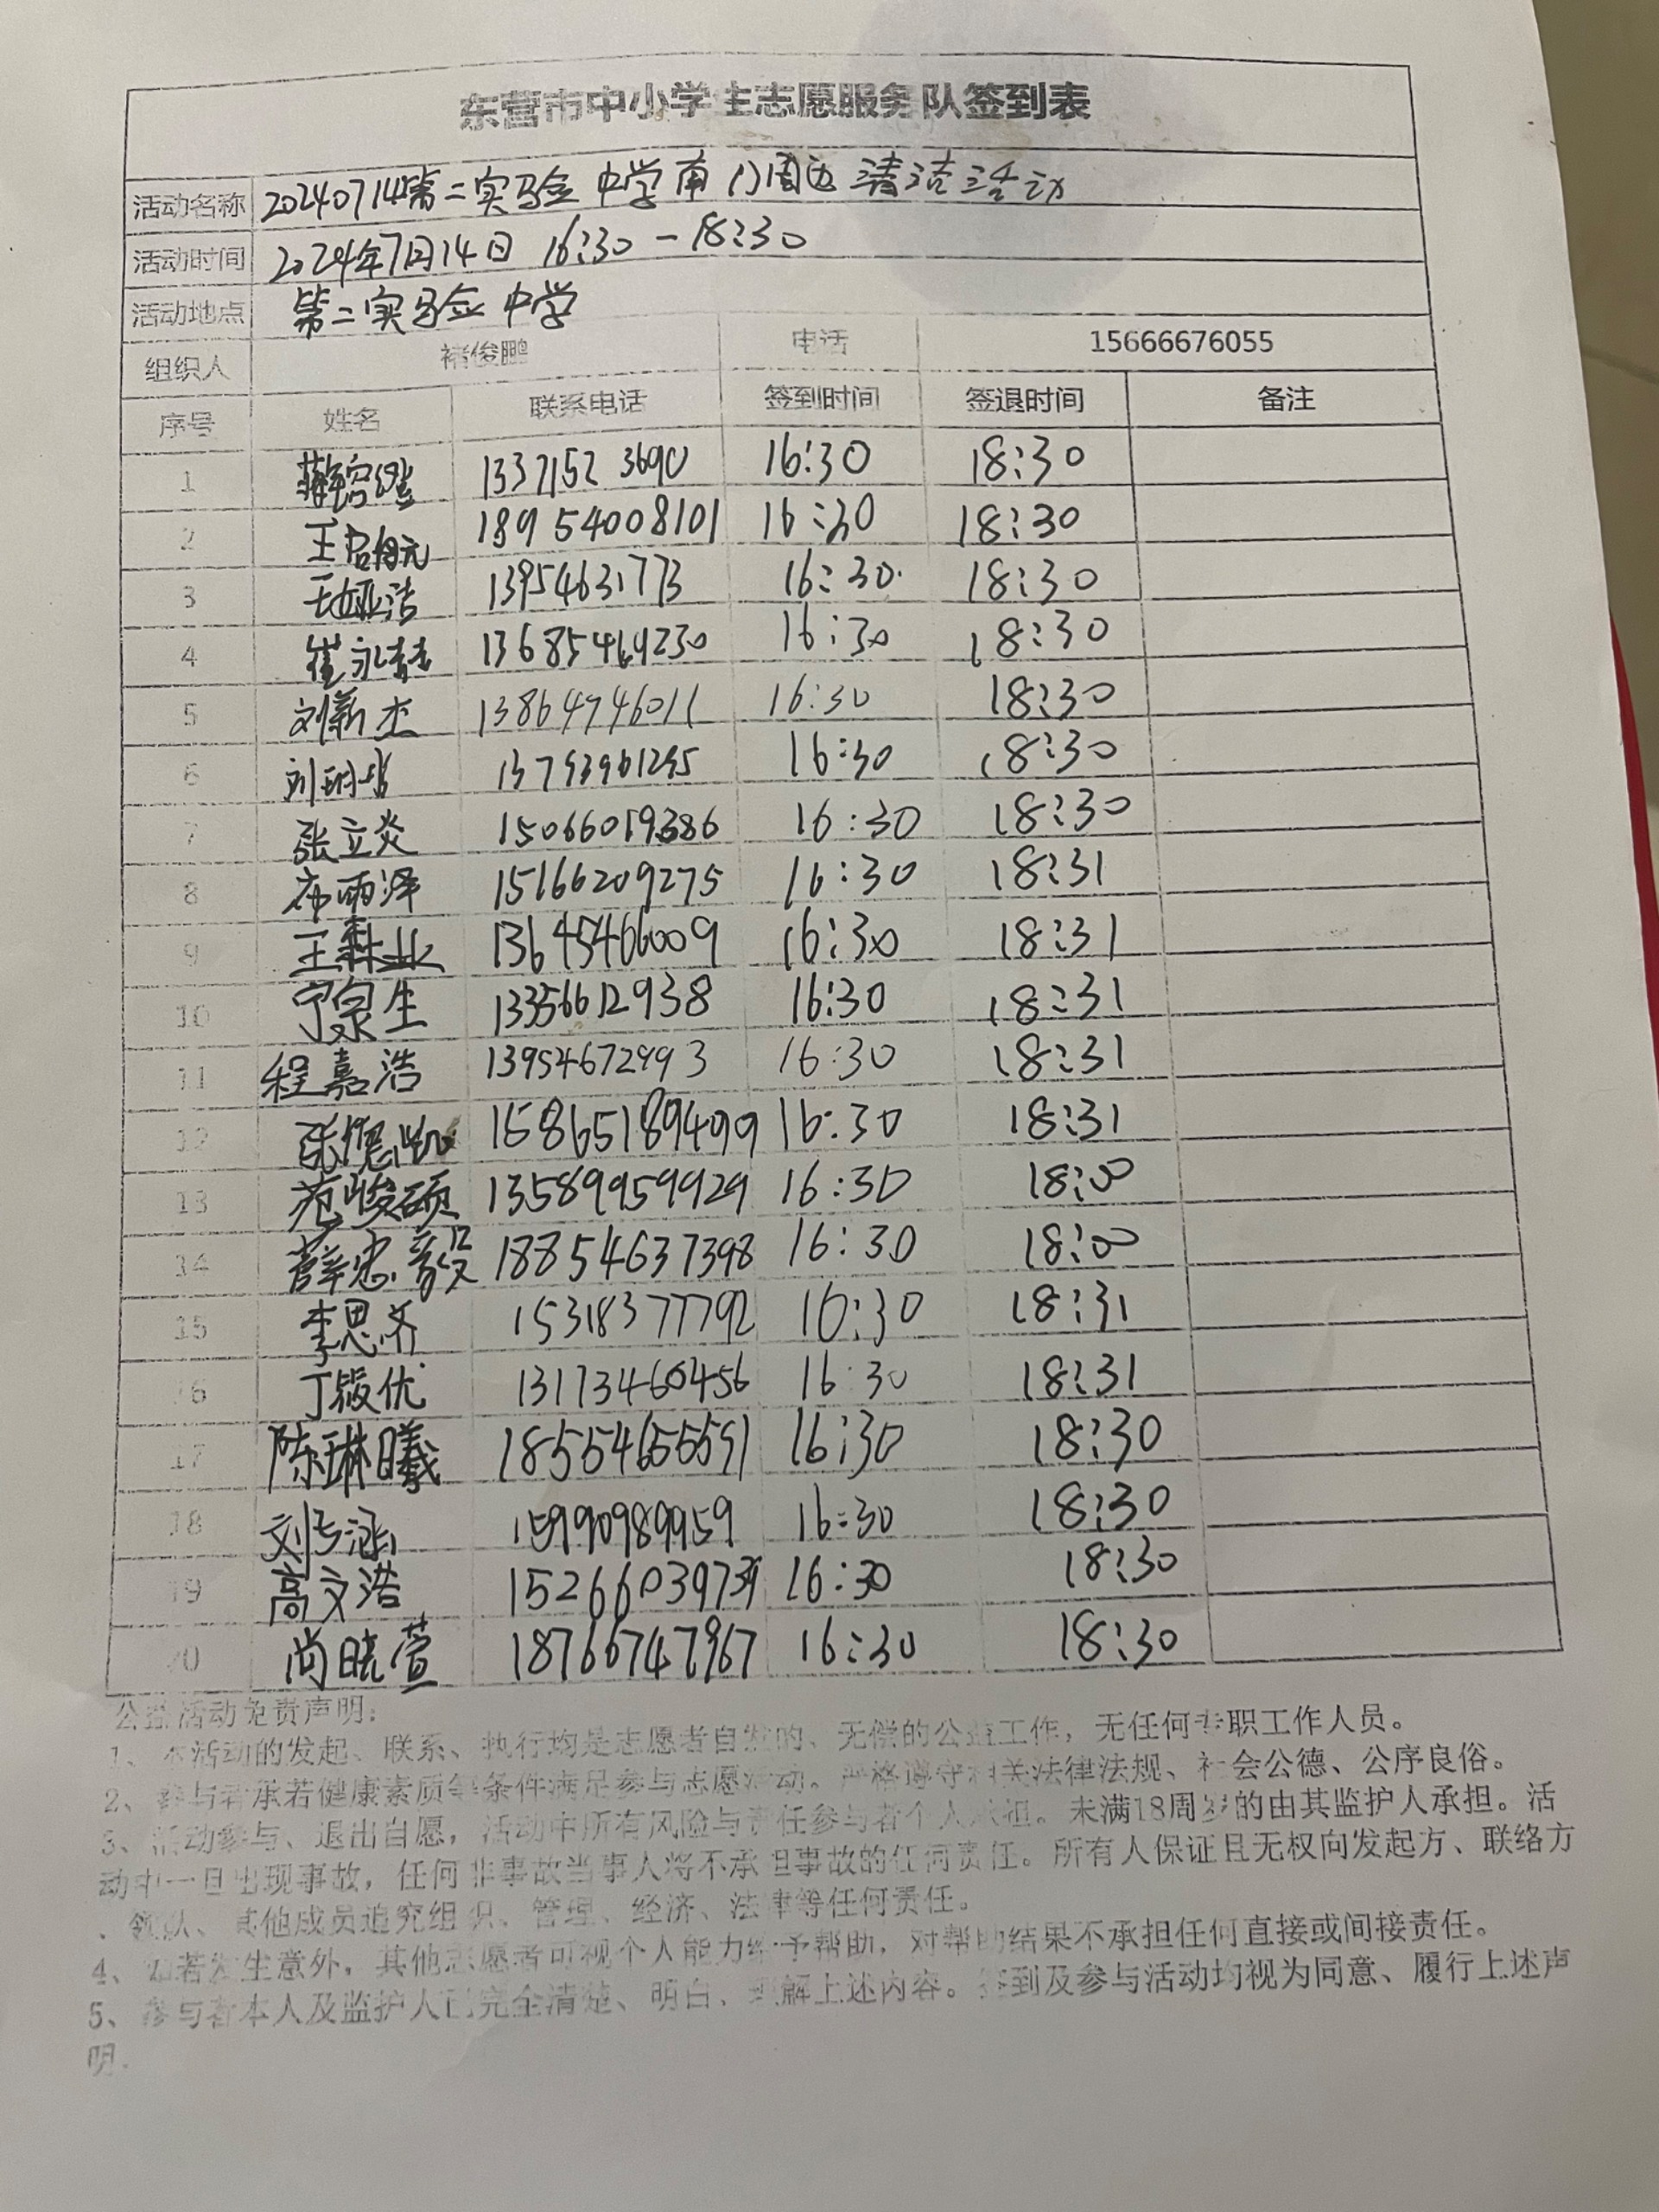 东营市中小学生志愿服务队签到表
活动名称 20240714第二实验中学南门周边清洁活动
活动时间 2024年7月14日 16:30-18:30
活动地点 第二实验中学
组织人 褚俊鹏 电话 15666676055
序号 姓名 联系电话 签到时间 签退时间 备注
1 13371523690 16:30 18:30
2 18954008101 16:30 18:30
3 13954631773 16:30 18:30
4 16:30 18:30
5 刘新杰 13864746011 16:30 18:30
6 16:30 18:30
7 张立炎 15066019386 16:30 18:30
8 布雨泽 15166209275 16:30 18:31
9 王森业 13645466009 16:30 18:31
10 宁泉生 13356612938 16:30 18:31
11 程嘉浩 13954672993 16:30 18:31
12 15865189499 16:30 18:31
13 范峻硕 13589959929 16:30 18:00
14 薛忠毅 18854637398 16:30 18:00
15 李思济 15318377792 16:30 18:31
16 丁筱优 13173460456 16:30 18:31
17 陈琳曦 16:30 18:30
18 15990989959 16:30 18:30
19 高文浩 16:30 18:30
20 尚晓萱 18766747967 16:30 18:30
公益活动免责声明：
1、本活动的发起、联系、执行均是志愿者自发的、无偿的公益工作，无任何专职工作人员。
2、参与者承若健康素质等条件满足参与志愿活动。严格遵守相关法律法规、社会公德、公序良俗。
3、活动参与、退出自愿，活动中所有风险与责任参与者个人承担。未满18周岁的由其监护人承担。活
动中一旦出现事故，任何非事故当事人将不承担事故的任何责任。所有人保证且无权向发起方、联络方
、领队、其他成员追究组织、管理、经济、法律等任何责任。
4、如若发生意外，其他志愿者可视个人能力给予帮助，对帮助结果不承担任何直接或间接责任。
5、参与者本人及监护人已完全清楚、明白、理解上述内容。签到及参与活动均视为同意、履行上述声
明。